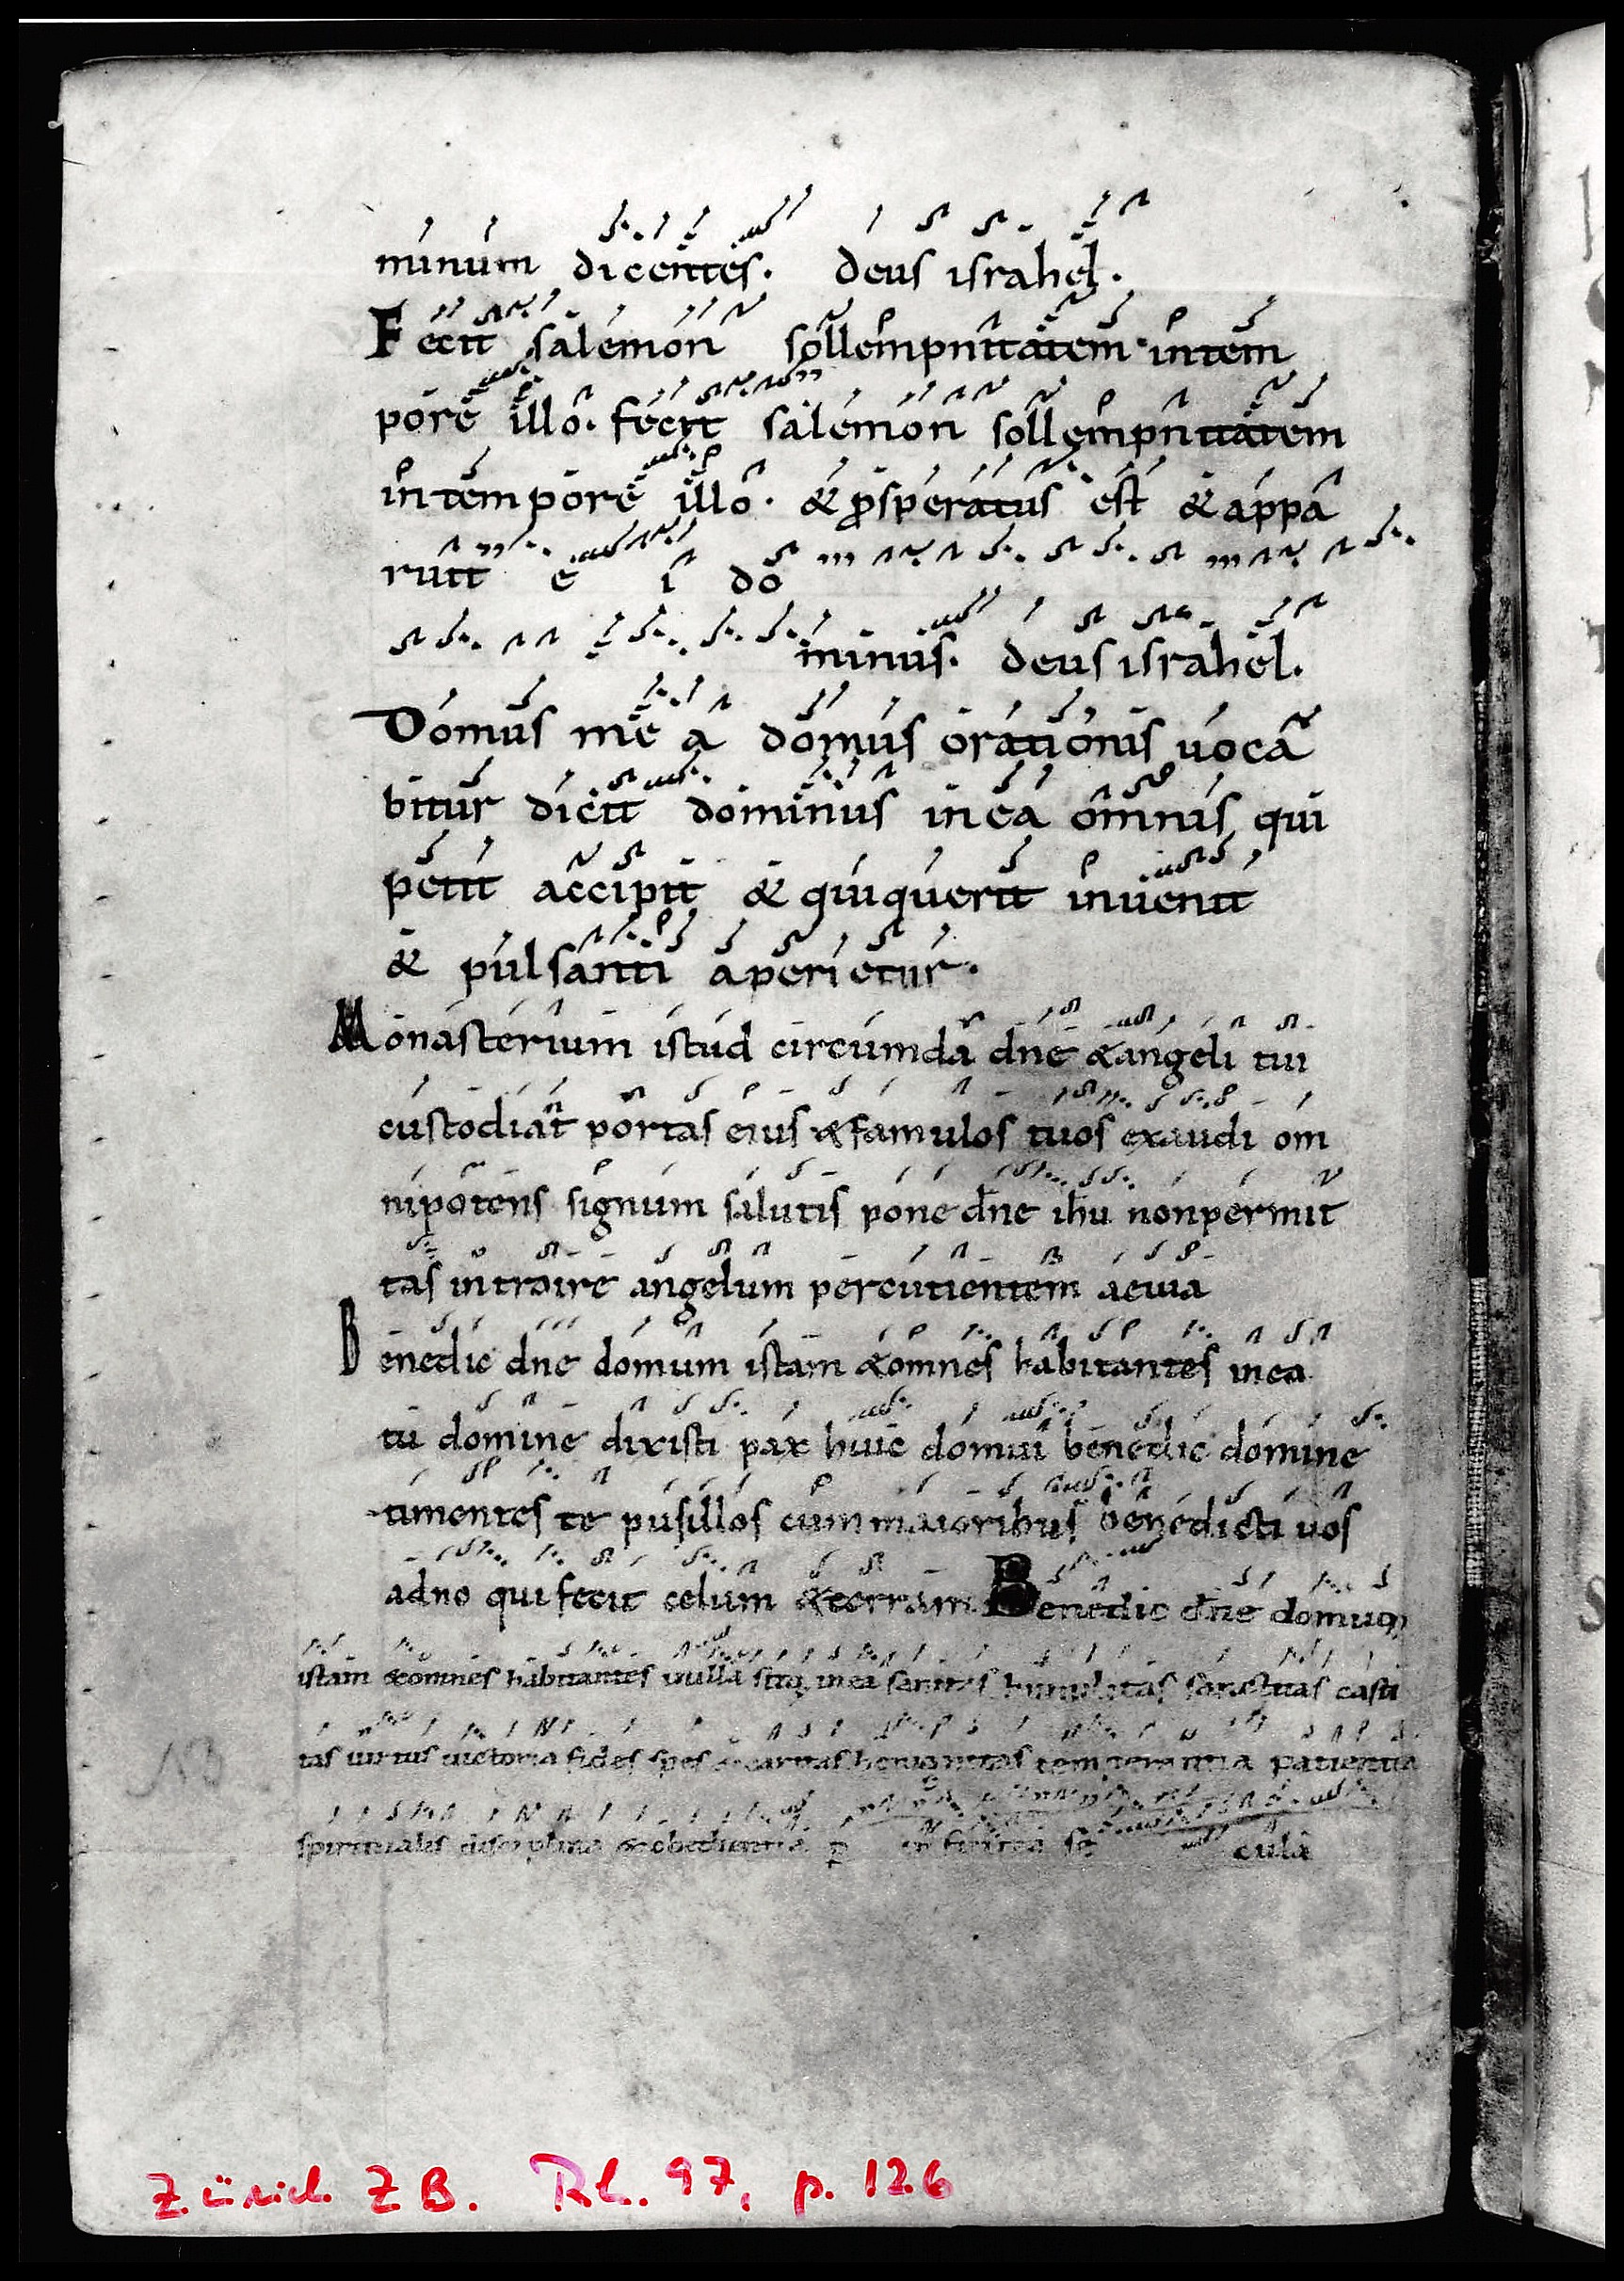 minum dicentes. deus israhel.
Fecit salemon sollempnitatem intem
pore illo. fecit salemon sollempnitatem
intempore illo. & ꝓsperatus est & appa
ruit e i do
minus. deus israhel.
Domus me a domus orationis uoca
bitur dicit dominus in ea omnis qui
petit accipit & qui querit inuenit
& pulsanti aperietur.
Monasterium istud circumda dne & angeli tui
custodiat portas eius & famulos tuos exaudi om
nipotens signum salutis pone dne ihu non permit
tas introire angelum percutientem aeuia
Benedic dne domum istam & omnes habitantes in ea
tu domine dixisti pax huic domui benedic domine
timentes te pusillos cum maioribus benedicti uos
adno qui fecit celum & terram Benedic dne domum
istam & omnes habitantes in illa sitq; in ea sanitas humilitas sanctitas casti
tas uirtus uictoria fides spes & caritas benignitas temperantia patientia
spiritualis disciplina & obedientia p infinita se cula
Zürich ZB. Rh. 97, p. 126